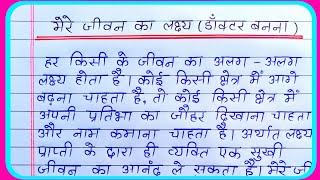 मेरे जीवन का लक्ष्य (डॉक्टर बनना)
हर किसी के जीवन का अलग-अलग
लक्ष्य होता है। कोई किसी क्षेत्र में आगे
बढ़ना चाहता है, तो कोई किसी क्षेत्र में
अपनी प्रतिभा का जौहर दिखाना चाहता है
और नाम कमाना चाहता है। अर्थात लक्ष्य
प्राप्ती के द्वारा ही व्यक्ति एक सुखी
जीवन का आनंद ले सकता है। मेरे जी